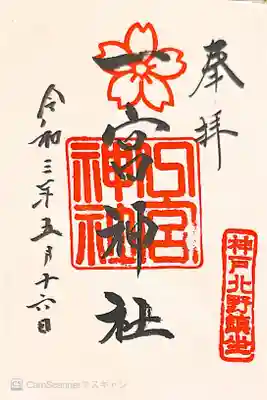 奉拝
一宮神社
一宮神社
神戸北野鎮坐
令和三年五月十六日
CamScannerでスキャン